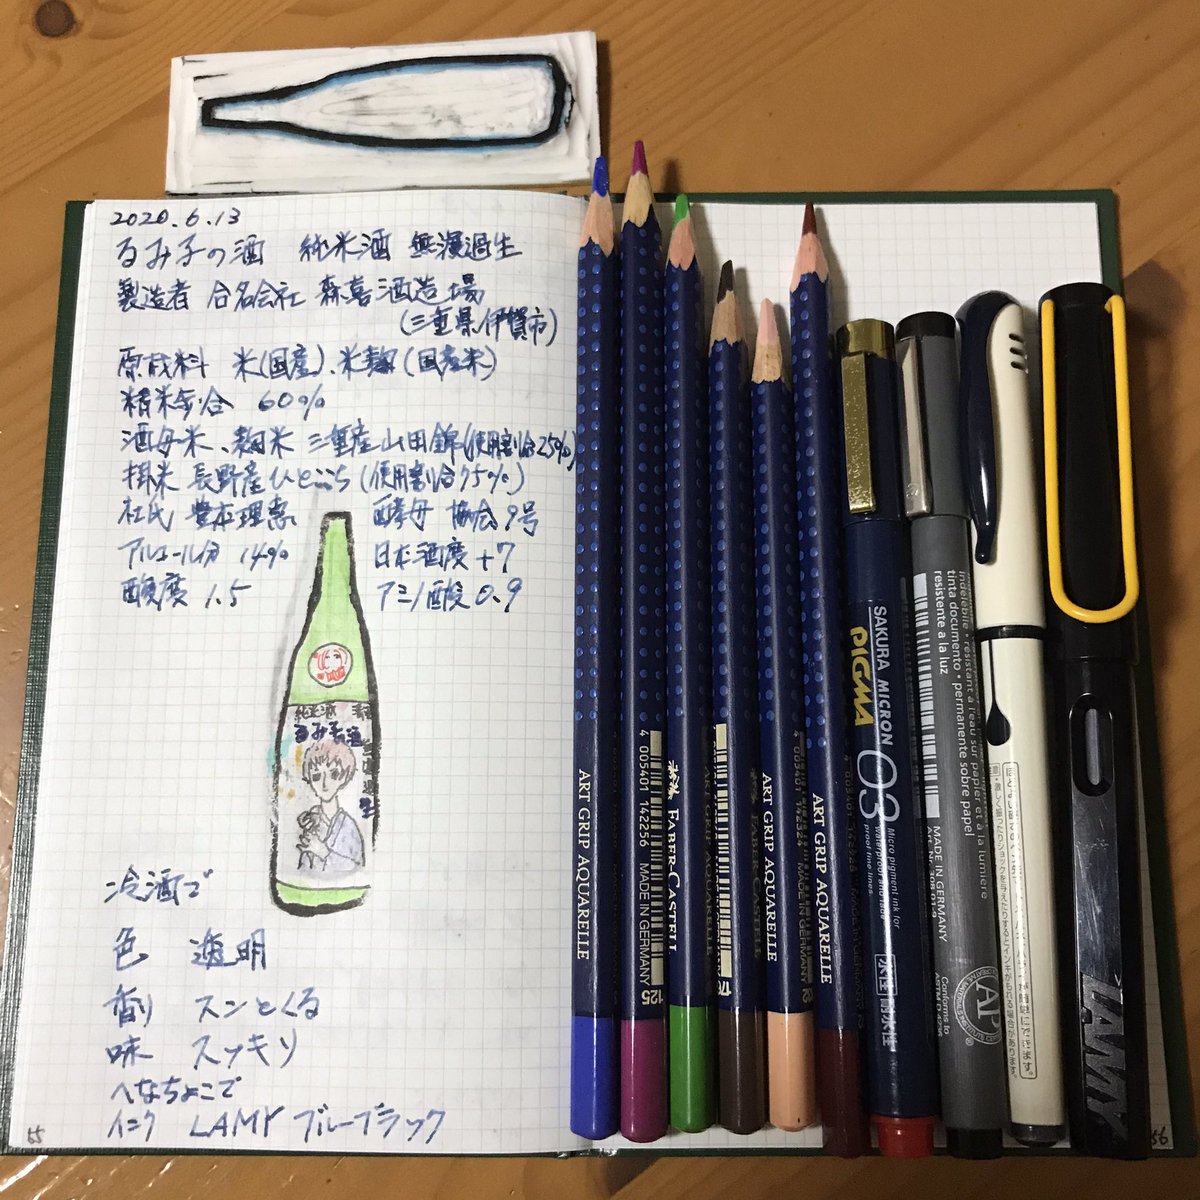 2020.6.13
るみ子の酒 純米酒 無濾過生
製造者 合名会社 森喜酒造場
(三重県伊賀市)
原材料 米(国産)、米麹(国産米)
精米歩合 60%
酒母米、麹米 三重産山田錦(使用割合25%)
掛米 長野産ひとごこち(使用割合75%)
杜氏 豊本理恵 酵母 協会9号
アルコール分 14% 日本酒度 +7
酸度 1.5 アミノ酸 0.9
純米酒
るみ子の酒
冷酒で
色 透明
香り スンとくる
味 スッキリ
へなちょこで
インク LAMY ブルーブラック
55
56
ART GRIP AQUARELLE
4 005401 142256 MADE IN GERMANY 125
FABER-CASTELL
ART GRIP AQUARELLE
4 005401 142324 MADE IN GERMANY
ART GRIP AQUARELLE
SAKURA MICRON
PIGMA
03
Micro pigment ink for
waterproof and fade
proof fine lines
水性 耐水性
indélébile • résistant à l'eau sur papier et à la lumière
tinta documento • permanente sobre papel
resistente a la luz
MADE IN GERMANY
Art.-Nr. 308 01-9
Conforms to
ASTM D-4236
AP
LAMY